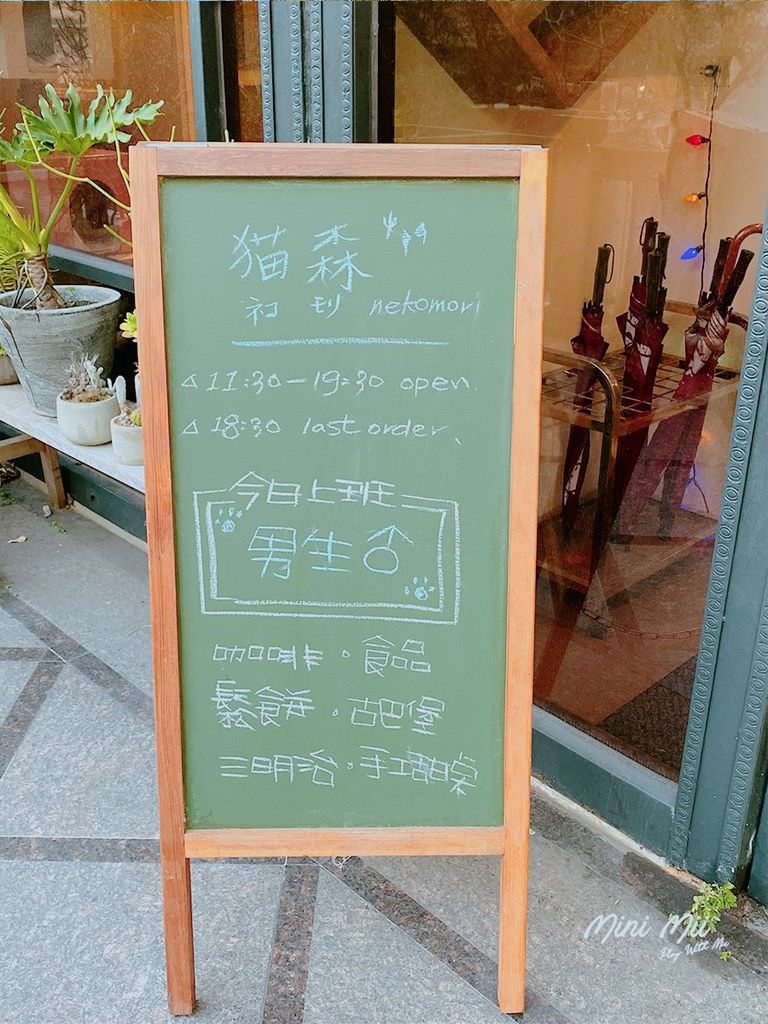 猫森
ネコ モリ nekomori
△ 11:30-19:30 open.
△ 18:30 last order、
今日上班
男生♂
咖啡。食品
鬆餅。古巴堡
三明治。手工甜點
Mini Mii
Play With Me